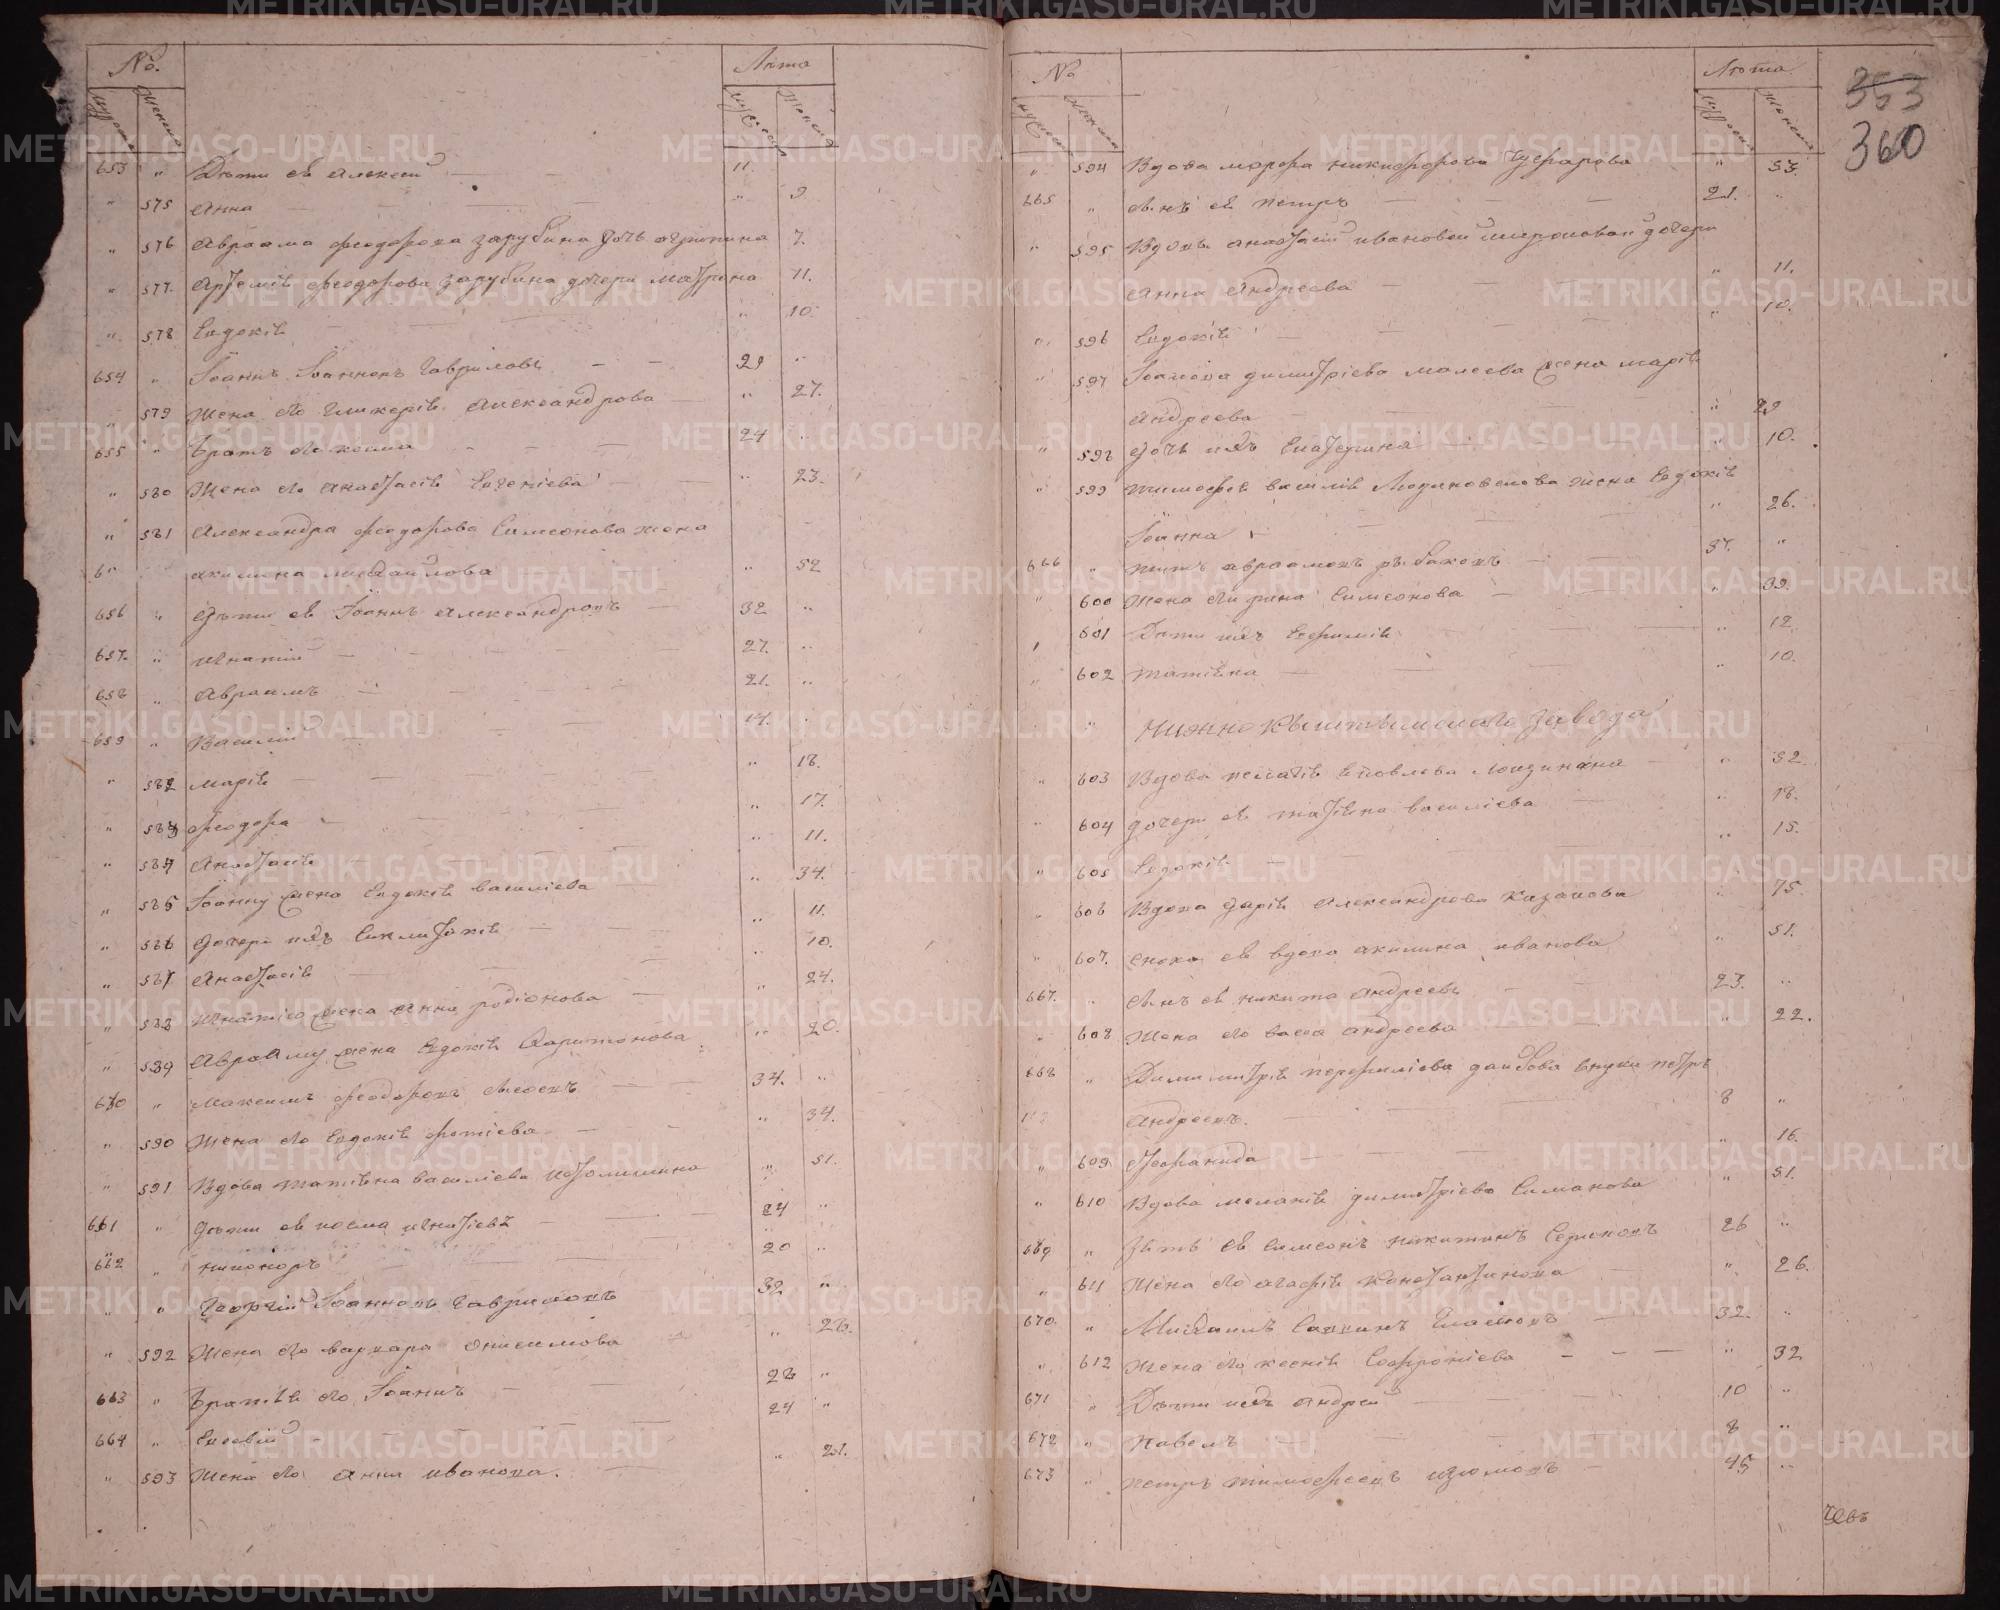 № Лѣта
мужска женска мужска женска
653 " Дѣти ея Алексей 11.
" 575 Анна " 9
" 576 Авраама Феодорова Зарубина дочь Агрипина 7.
" 577. Артемія Феодорова Зарубина дочери Матрона 11.
" 578 Евдокія " 10.
654 " Іоаннъ Іоанновъ Гавриловъ 29 "
" 579 Жена его Гликерія Александрова " 27.
655 " Братъ его Косма 24 "
" 580 Жена его Анастасія Евгеніева " 23.
" 581 Александра Феодорова Симеонова жена
Акилина Михайлова " 52
656 " Дѣти ея Іоаннъ Александровъ 32 "
657. " Игнатій 27. "
658 " Авраамъ 21. "
659 " Василій 14. "
" 582 Марія " 18.
" 583 Феодора " 17.
" 584 Анастасія " 11.
" 585 Іоанну жена Евдокія Василіева " 34.
" 586 Дочери ихъ Синклитикія " 11.
" 587 Анастасія " 10.
" 588 Игнатію жена Анна Родіонова " 24.
" 589 Аврааму жена Евдокія Харитонова " 20.
660 " Максимъ Феодоровъ 34. "
" 590 Жена его Евдокія Фотіева " 34.
" 591 Вдова Татіяна Василіева " 51.
661 " Дѣти ея Косма Игнатіевъ 24 "
662 " Никоноръ 20 "
" " Георгій Іоанновъ Гавриловъ 32 "
" 592 Жена его Варвара Онисимова " 28.
663 " Братья его Іоаннъ 28 "
664 " Евсевій 24 "
" 593 Жена его Анна Иванова. " 21.
353
360
№ Лѣта
мужска женска мужска женска
" 594 Вдова Марфа Никифорова " 53.
665 " Сынъ ея Петръ 21. "
" 595 Вдовы Анастасіи Ивановой дочери
Анна Андреева " 11.
" 596 Евдокія " 10.
" 597 Іоакова Димитріева Малеева жена Марія
Андреева " 29
" 598 Дочь ихъ Екатерина " 10.
" 599 Тимофея Василія жена Евдокія
Іоанна " 26.
666 " Титъ Авраамовъ Рыбаковъ 37. "
" 600 Жена его Ирина Симеонова " 39.
" 601 Дѣти ихъ Евфимія " 12.
" 602 Татіяна " 10.
" Нижнекыштымскаго завода
" 603 Вдова Пелагія " 52.
" 604 Дочери ея Татіяна Василіева " 18.
" 605 Евдокія " 15.
" 606 Вдова Дарія Александрова Казакова " 75.
" 607. Сноха ея вдова Акилина Иванова " 51.
667. " Сынъ ея Никита Андреевъ 23. "
" 608 Жена его Васса Андреева " 22.
668 " Димитрія Перфиліева внуки Петръ
Андреевъ. 8 "
" 609 Стефанида " 16.
" 610 Вдова Меланія Димитріева Симанова " 51.
669 " Зять ея Симеонъ Никитинъ 26 "
" 611 Жена его Агафія Константинова " 26.
670. " Михаилъ Саввинъ 32. "
" 612 Жена его Ксенія Софроніева " 32
671 " Дѣти ихъ Андрей 10 "
672 " Павелъ 8 "
673 " Петръ Тимофеевъ Изюмовъ 45 "